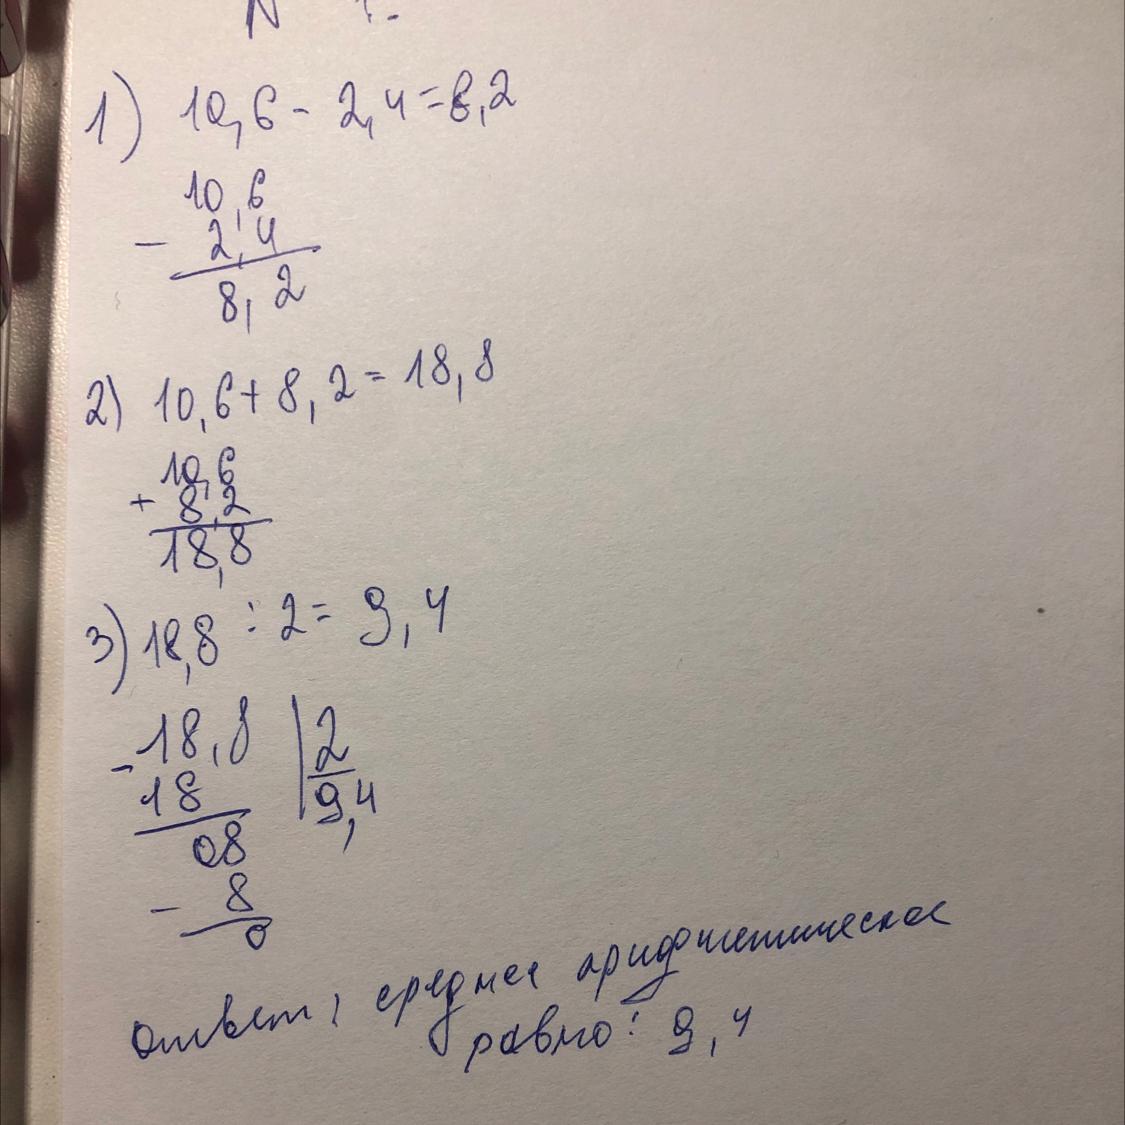 1) 10,6 - 2,4 = 8,2
10,6
- 2,4
8,2
2) 10,6 + 8,2 = 18,8
10,6
+ 8,2
18,8
3) 18,8 : 2 = 9,4
- 18,8 | 2
18 9,4
08
- 8
0
Ответ: среднее арифметическое
равно: 9,4